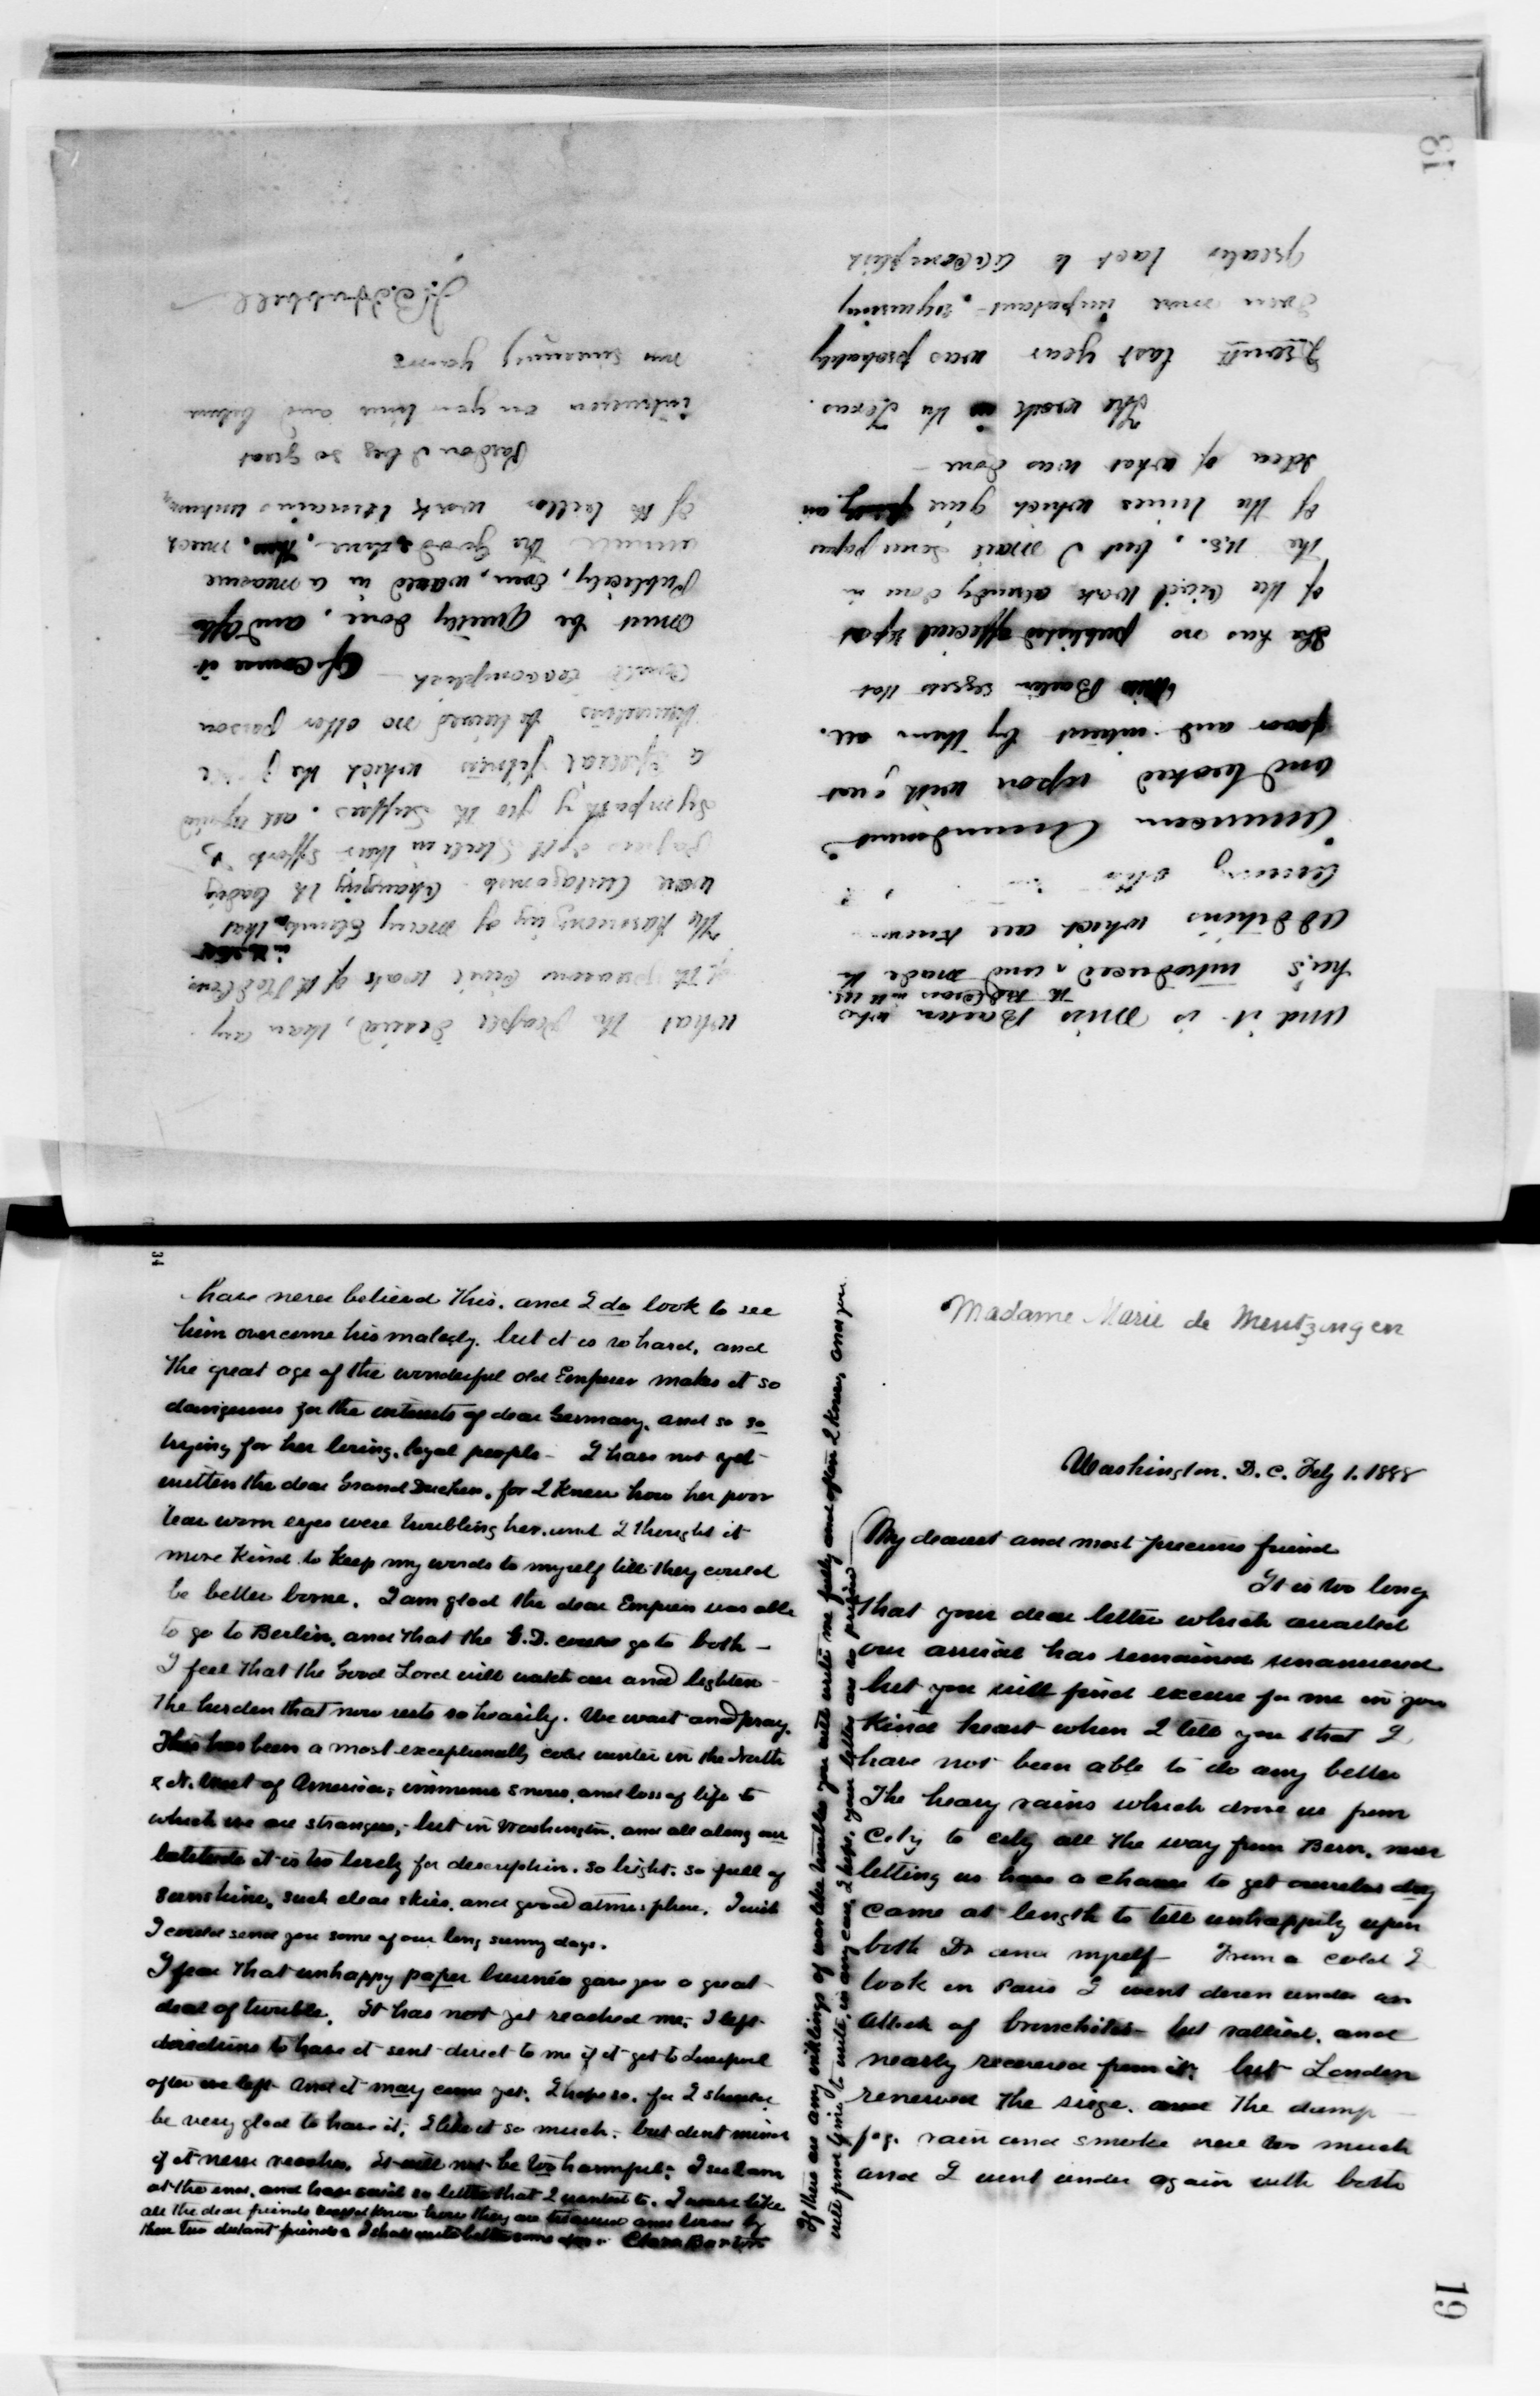 18
And it is Miss Barton who
the Red Cross in the U.S.
has introduced, and made the
additions which are known
among other
American Amendment
and looked upon with great
favor and interest by them all.
Miss Barton regrets that
she has no published official report
of the civil work already done in
the U.S., but I mail some papers
of the times which give an
idea of what was done —
The work in the Texas
Drouth last year was probably
even more important, requiring
greater tact to accomplish
what the people desired, than any
of the previous civil work of the Red Cross.
The harmonizing of many elements that
were antagonistic - changing the leading
papers of the State in their efforts
sympathy for the sufferers, all required
a special fitness which the
believed no other person
could accomplish — Of course it
must be quietly done, and often
publicity, even, would in a measure
annul the good done, much
of the better work remains unknown
Pardon I beg so great
intrusion on your time and believe
me sincerely yours
J. B. Hubbell
34
Madame Marie de Mentzingen
Washington. D. C. Feby 1. 1888
My dearest and most precious friend
It is too long
that your dear letter which awaited
our arrival has remained unanswered
but you will find excuse for me in your
kind heart when I tell you that I
have not been able to do any better
The heavy rains which drove us from
City to city all the way from Bern, never
letting us have a chance to get ourselves dry
came at length to tell unhappily upon
both Dr and myself — From a cold I
took in Paris I went down under an
attack of bronchitis — but rallied, and
nearly recovered from it; but London
renewed the siege, and the damp
fog, rain and smoke were too much
and I went under again with both
19
have never believed this, and I do look to see
him overcome his malady. but it is so hard, and
the great age of the wonderful old Emperor makes it so
dangerous for the interests of dear Germany, and so so
trying for her loving, loyal people — I have not yet
written the dear Grand Duchess, for I knew how her poor
tear worn eyes were troubling her, and I thought it
more kind to keep my words to myself till they could
be better borne. I am glad the dear Empress was able
to go to Berlin, and that the G.D. could go to both —
I feel that the Good Lord will watch over and lighten
the burden that now rests so heavily. We wait and pray.
This has been a most exceptionally cold winter in the North
& N. West of America; immense snows, and loss of life to
which we are strangers, but in Washington, and all along our
latitude it is too lovely for description. so bright. so full of
sunshine, such clear skies, and good atmosphere. I wish
I could send you some of our long sunny days.
I fear that unhappy paper business gave you a great
deal of trouble. It has not yet reached me; I left
directions to have it sent direct to me if it got to Liverpool
after we left. And it may come yet; I hope so, for I should
be very glad to have it; I like it so much; but dont mind
if it never reaches. It will not be too harmful; I see I am
at the end, and have said so little that I wanted to. I would like
all the dear friends know how they are treasured and loved by
these two distant friends & I shall write better some day. Clara Barton
If there are any inklings of warlike troubles you will write me fully and often I know, and you
will find time to write, in any case, I hope, your letters are so prized —